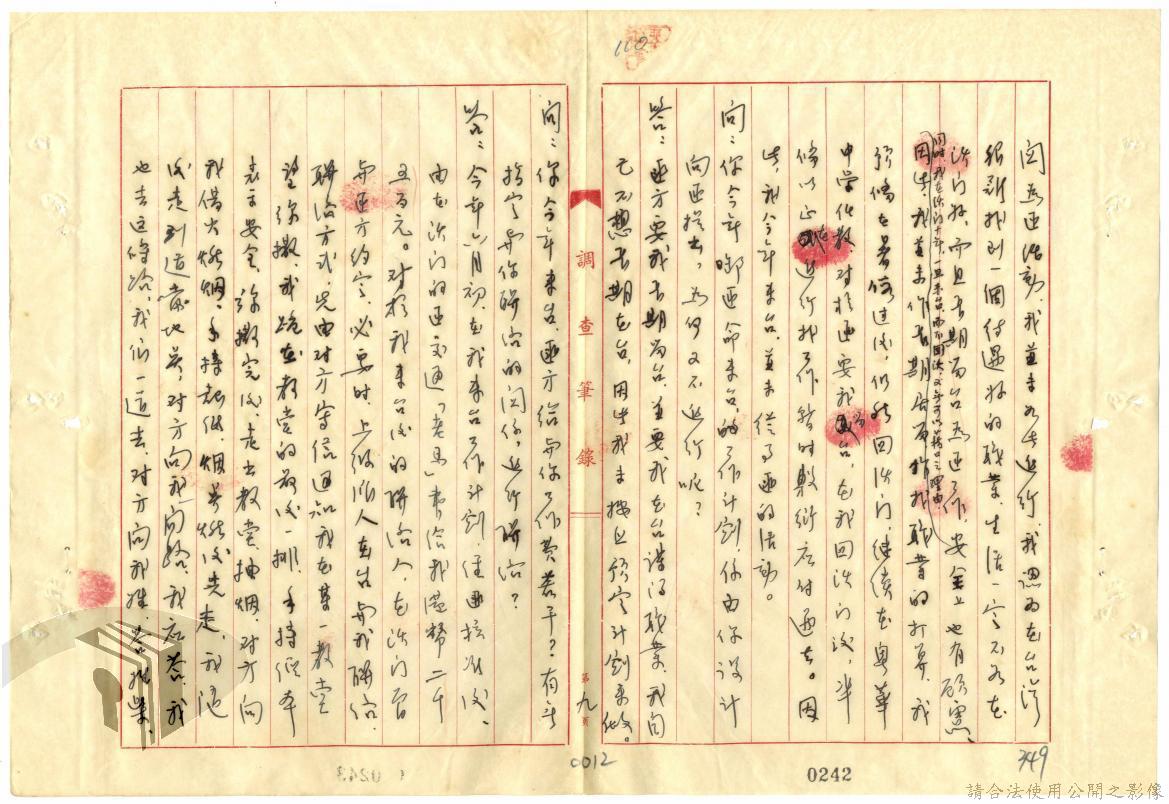 110
闵為匪活動，我並未如此進行，我認為在台灣
很難找到一個待遇好的職業，生活一定不如在
澳門好，而且長期留台為匪工作，安全上也有顧慮，
同時我在澳門十年，且來台
因此，我並未作長期居留搞找職業的打算，我
預備在暑假過後，仍然回澳門，繼續在粵華
中學任教，對於匪要我留台，在我回澳門後，準
備以正在進行找工作暫時敷衍應付過去。因
此，我今年來台，並未從事匪的活動。
問：你今年啣匪命來台的工作計劃，係由你設計
向匪提出，為何又不進行呢？
答：匪方要我長期留台，並要我在台謀得職業，我因
已不想長期在台，因此我未按照預定計劃來做。
調查筆錄
第九頁
問：你今年來台，匪方給與你工作費若干？有無
指定與你聯絡的關係，進行聯絡？
答：今年六月初，在我來台工作計劃，經匪核准後，
由在澳門的匪交通「老馬」者給我港幣二千
五百元。對於我來台後的聯絡人，在澳門曾
與匪方約定，必要時，上級派人在台與我聯絡，
聯絡方式，先由對方寄信通知我在某一教堂
望彌撒，我跪在教堂的最後一排，手持
表示安全，彌撒完後，走出教堂抽烟，對方向
我借火燃烟，手持起後，烟點燃後先走，我隨
後走到適當地點，對方向我問路，我應答我
也去這條路，我們一道去，對方向我姓，答姓葉，
0242
0243
0012
349
請合法使用公開之影像